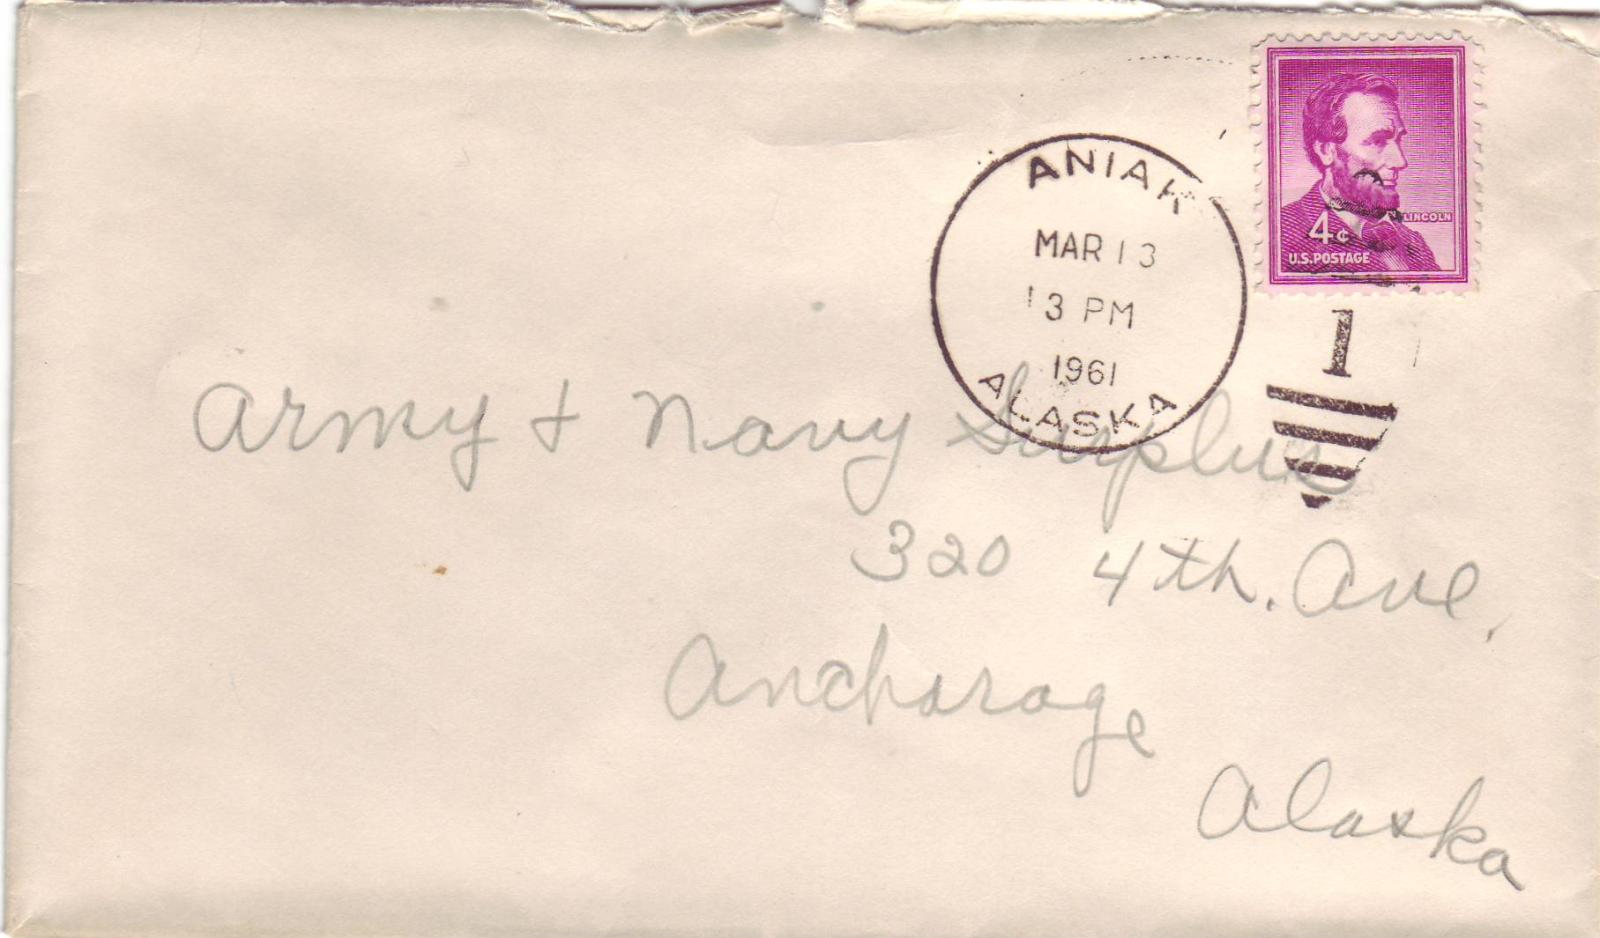 ANIAK
MAR 13
3 PM
1961
ALASKA
LINCOLN
4¢
U.S. POSTAGE
1
Army & Navy Surplus
320 4th. Ave.
Anchorage
Alaska